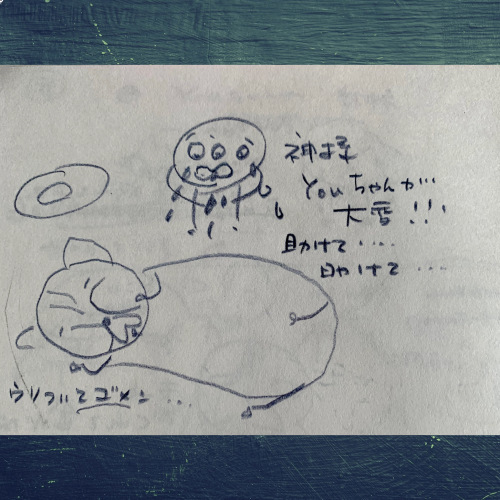 神様
Youちゃんが…
大雪!!!
助けて....
助けて...
ウソついてゴメン...